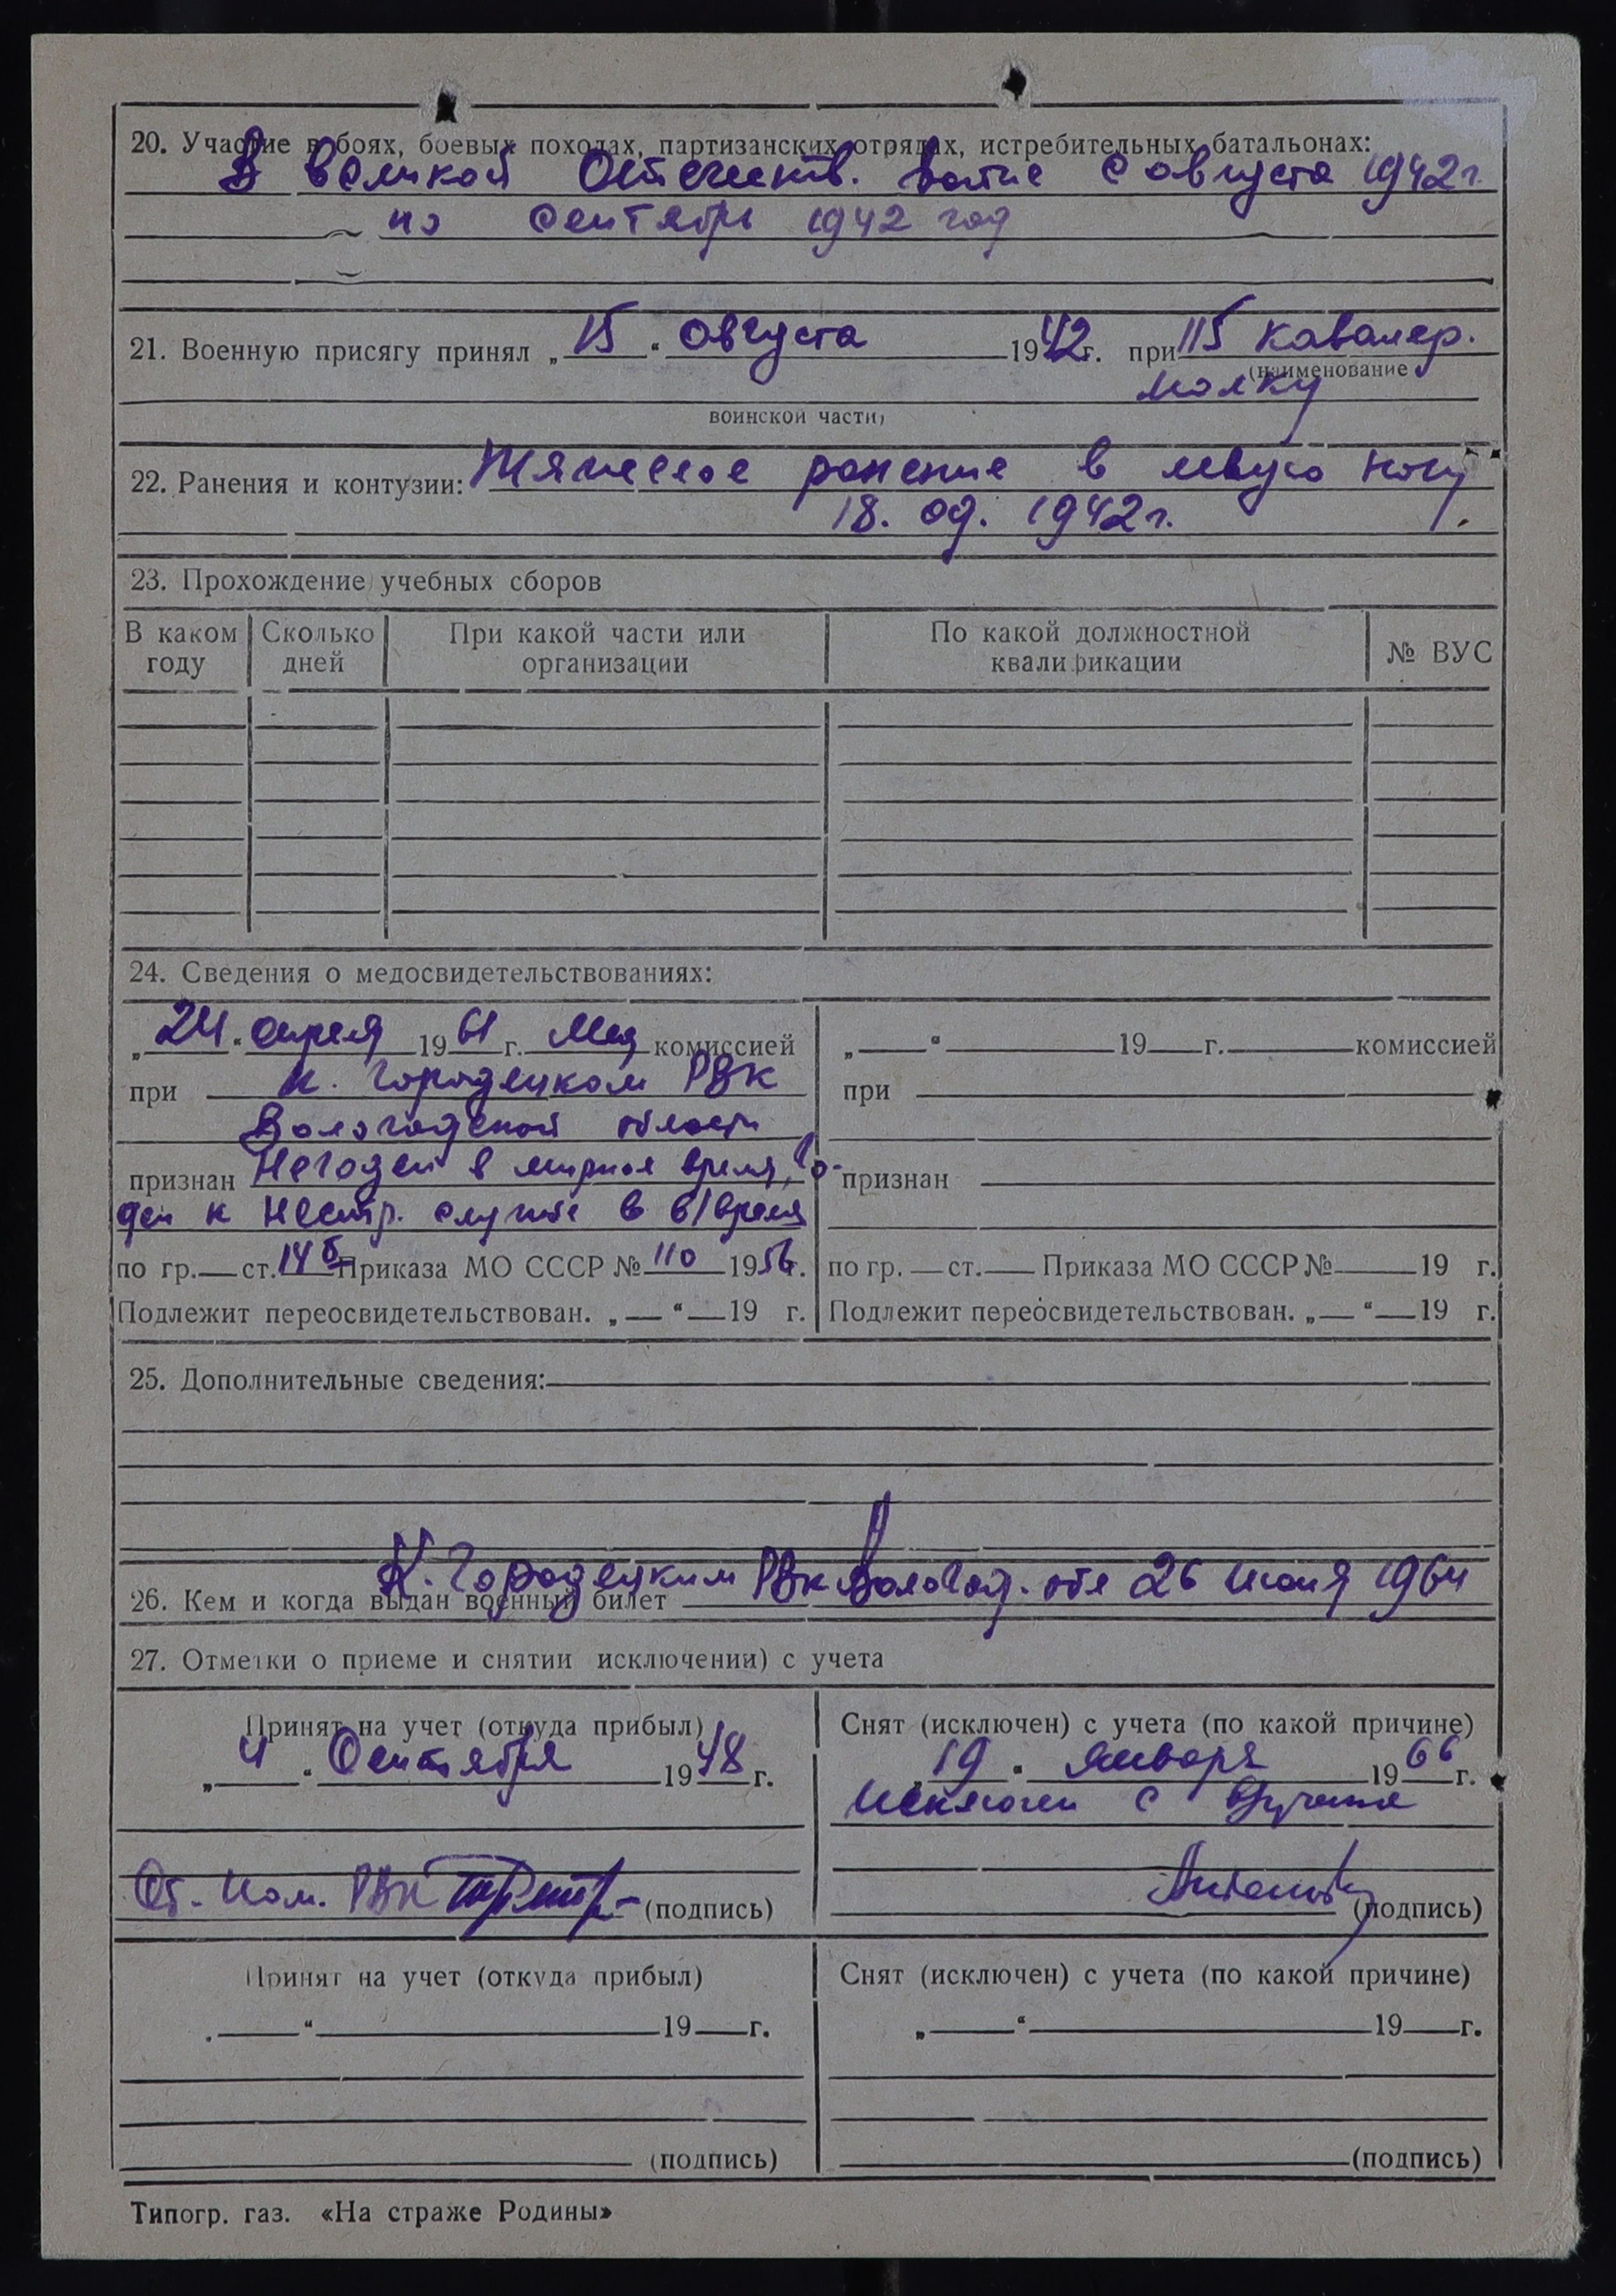 20. Участие в боях, боевых походах, партизанских отрядах, истребительных батальонах:
В Великой Отечеств. войне с августа 1942 г.
по сентябрь 1942 год
21. Военную присягу принял „15“ августа 1942 г. при 115 кавалер.
(наименование
полку
воинской части)
22. Ранения и контузии: Тяжелое ранение в левую ногу
18. 09. 1942 г.
23. Прохождение учебных сборов
В каком году
Сколько дней
При какой части или организации
По какой должностной квалификации
№ ВУС
24. Сведения о медосвидетельствованиях:
„24“ апреля 1961 г. Мед комиссией
при К. Городецком РВК
Вологодской области
признан Негоден в мирное время, го-
ден к нестр. службе в в/время
по гр. — ст. 14б Приказа МО СССР № 110 1956 г.
Подлежит переосвидетельствован. „—“ — 19 г.
„—“ — 19 — г. — комиссией
при
признан
по гр. — ст. — Приказа МО СССР № — 19 г.
Подлежит переосвидетельствован. „—“ — 19 г.
25. Дополнительные сведения:
26. Кем и когда выдан военный билет К. Городецким РВК Вологод. обл 26 июня 1964
27. Отметки о приеме и снятии исключении) с учета
Принят на учет (откуда прибыл)
„4“ Сентября 1948 г.
РВК (подпись)
Снят (исключен) с учета (по какой причине)
„19“ января 1966 г.
Исключен с в/учета
(подпись)
Принят на учет (откуда прибыл)
„—“ — 19 — г.
(подпись)
Снят (исключен) с учета (по какой причине)
„—“ — 19 — г.
(подпись)
Типогр. газ. «На страже Родины»